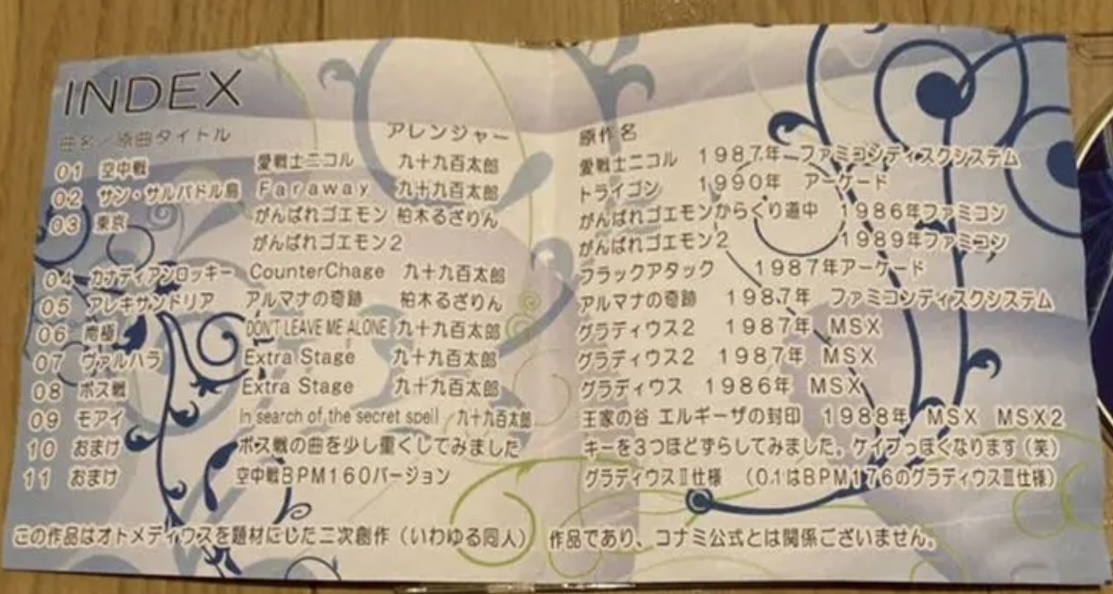 INDEX
曲名／原曲タイトル アレンジャー 原作名
01 空中戦 愛戦士ニコル 九十九百太郎 愛戦士ニコル 1987年 ファミコンディスクシステム
02 サン・サルバドル島 Faraway 九十九百太郎 トライゴン 1990年 アーケード
03 東京 がんばれゴエモン 柏木るざりん がんばれゴエモンからくり道中 1986年ファミコン
がんばれゴエモン2 がんばれゴエモン2 1989年ファミコン
04 カナディアンロッキー CounterChage 九十九百太郎 ブラックアタック 1987年アーケード
05 アレキサンドリア アルマナの奇跡 柏木るざりん アルマナの奇跡 1987年 ファミコンディスクシステム
06 南極 DON'T LEAVE ME ALONE 九十九百太郎 グラディウス2 1987年 MSX
07 ヴァルハラ Extra Stage 九十九百太郎 グラディウス2 1987年 MSX
08 ボス戦 Extra Stage 九十九百太郎 グラディウス 1986年 MSX
09 モアイ In search of the secret spell／九十九百太郎 王家の谷 エルギーザの封印 1988年 MSX MSX2
10 おまけ ボス戦の曲を少し重くしてみました キーを3つほどずらしてみました。ケイブっぽくなります（笑）
11 おまけ 空中戦BPM160バージョン グラディウスⅡ仕様 （01はBPM176のグラディウスⅢ仕様）
この作品はオトメディウスを題材にした二次創作（いわゆる同人） 作品であり、コナミ公式とは関係ございません。